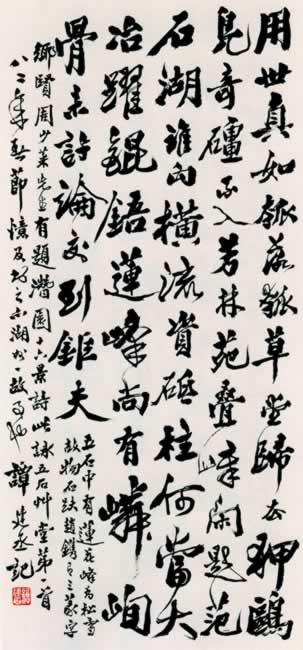 用世真如瓠落瓠草堂歸去狎鷗
鳧奇礓不入芳林苑疊嶂閑題范
石湖誰向橫流資砥柱何當大
冶躍錕鋙蓮峰尚有嶙峋
骨未許論交到鉅夫
五石中有蓮花峰為松雪
故物石趺趙鐫三篆字
鄉賢周少萊先生有題潛園十六景詩此詠五石艸堂第一首
八二年春節憶及書之亦湖州一故事也 譚建丞記